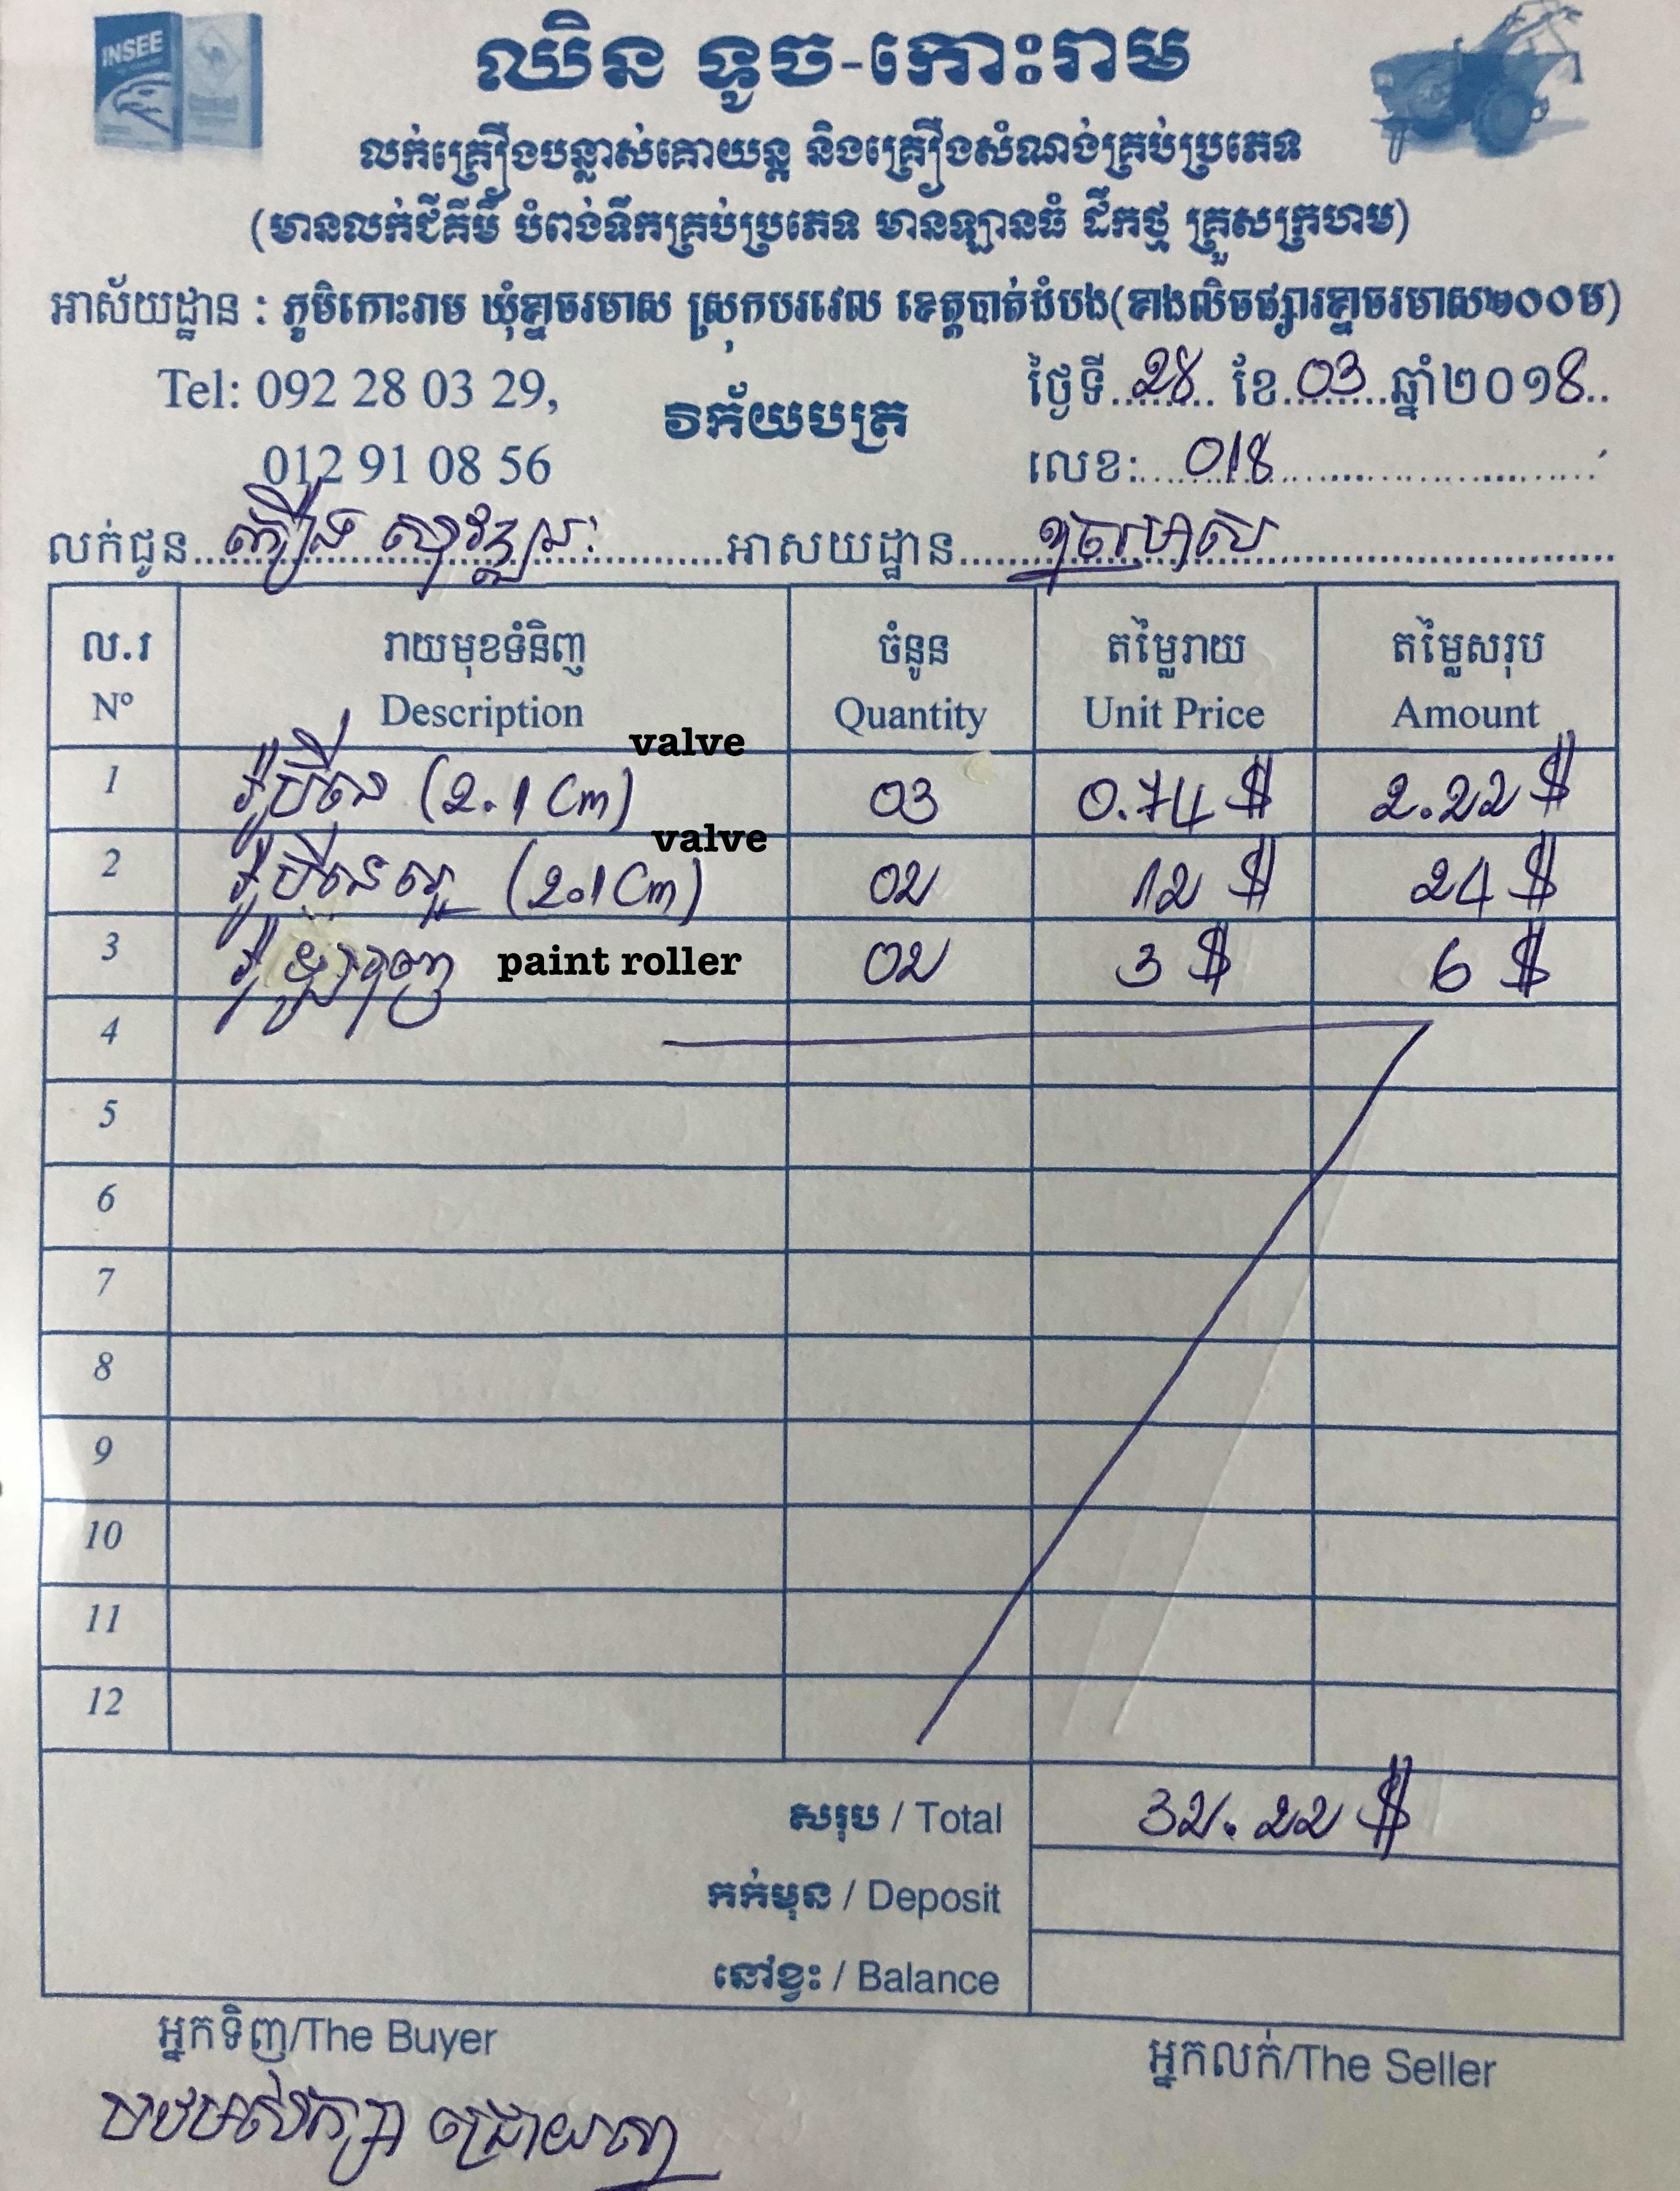 INSEE
ឈិន ទូច-កោះរាម
លក់គ្រឿងបន្លាស់គោយន្ត និងគ្រឿងសំណង់គ្រប់ប្រភេទ
(មានលក់ជីគីមី បំពង់ទឹកគ្រប់ប្រភេទ មានឡានធំ ដឹកថ្ម គ្រួសក្រហម)
អាស័យដ្ឋាន : ភូមិកោះរាម ឃុំខ្នាចរមាស ស្រុកបវេល ខេត្តបាត់ដំបង(ខាងលិចផ្សារខ្នាចរមាស២០០ម)
Tel: 092 28 03 29,
012 91 08 56
វិក័យបត្រ
ថ្ងៃទី 28 ខែ 03 ឆ្នាំ២០១8
លេខ: 018
លក់ជូន អាសយដ្ឋាន
ល.រ រាយមុខទំនិញ ចំនួន តម្លៃរាយ តម្លៃសរុប
Nº Description Quantity Unit Price Amount
valve
1 រ៉ូប៊ីនេ (2.1 Cm) 03 0.74 $ 2.22 $
valve
2 រ៉ូប៊ីនេ (2.1 Cm) 02 12 $ 24 $
3 paint roller 02 3 $ 6 $
4
5
6
7
8
9
10
11
12
សរុប / Total 32.22 $
កក់មុន / Deposit
នៅខ្វះ / Balance
អ្នកទិញ/The Buyer អ្នកលក់/The Seller